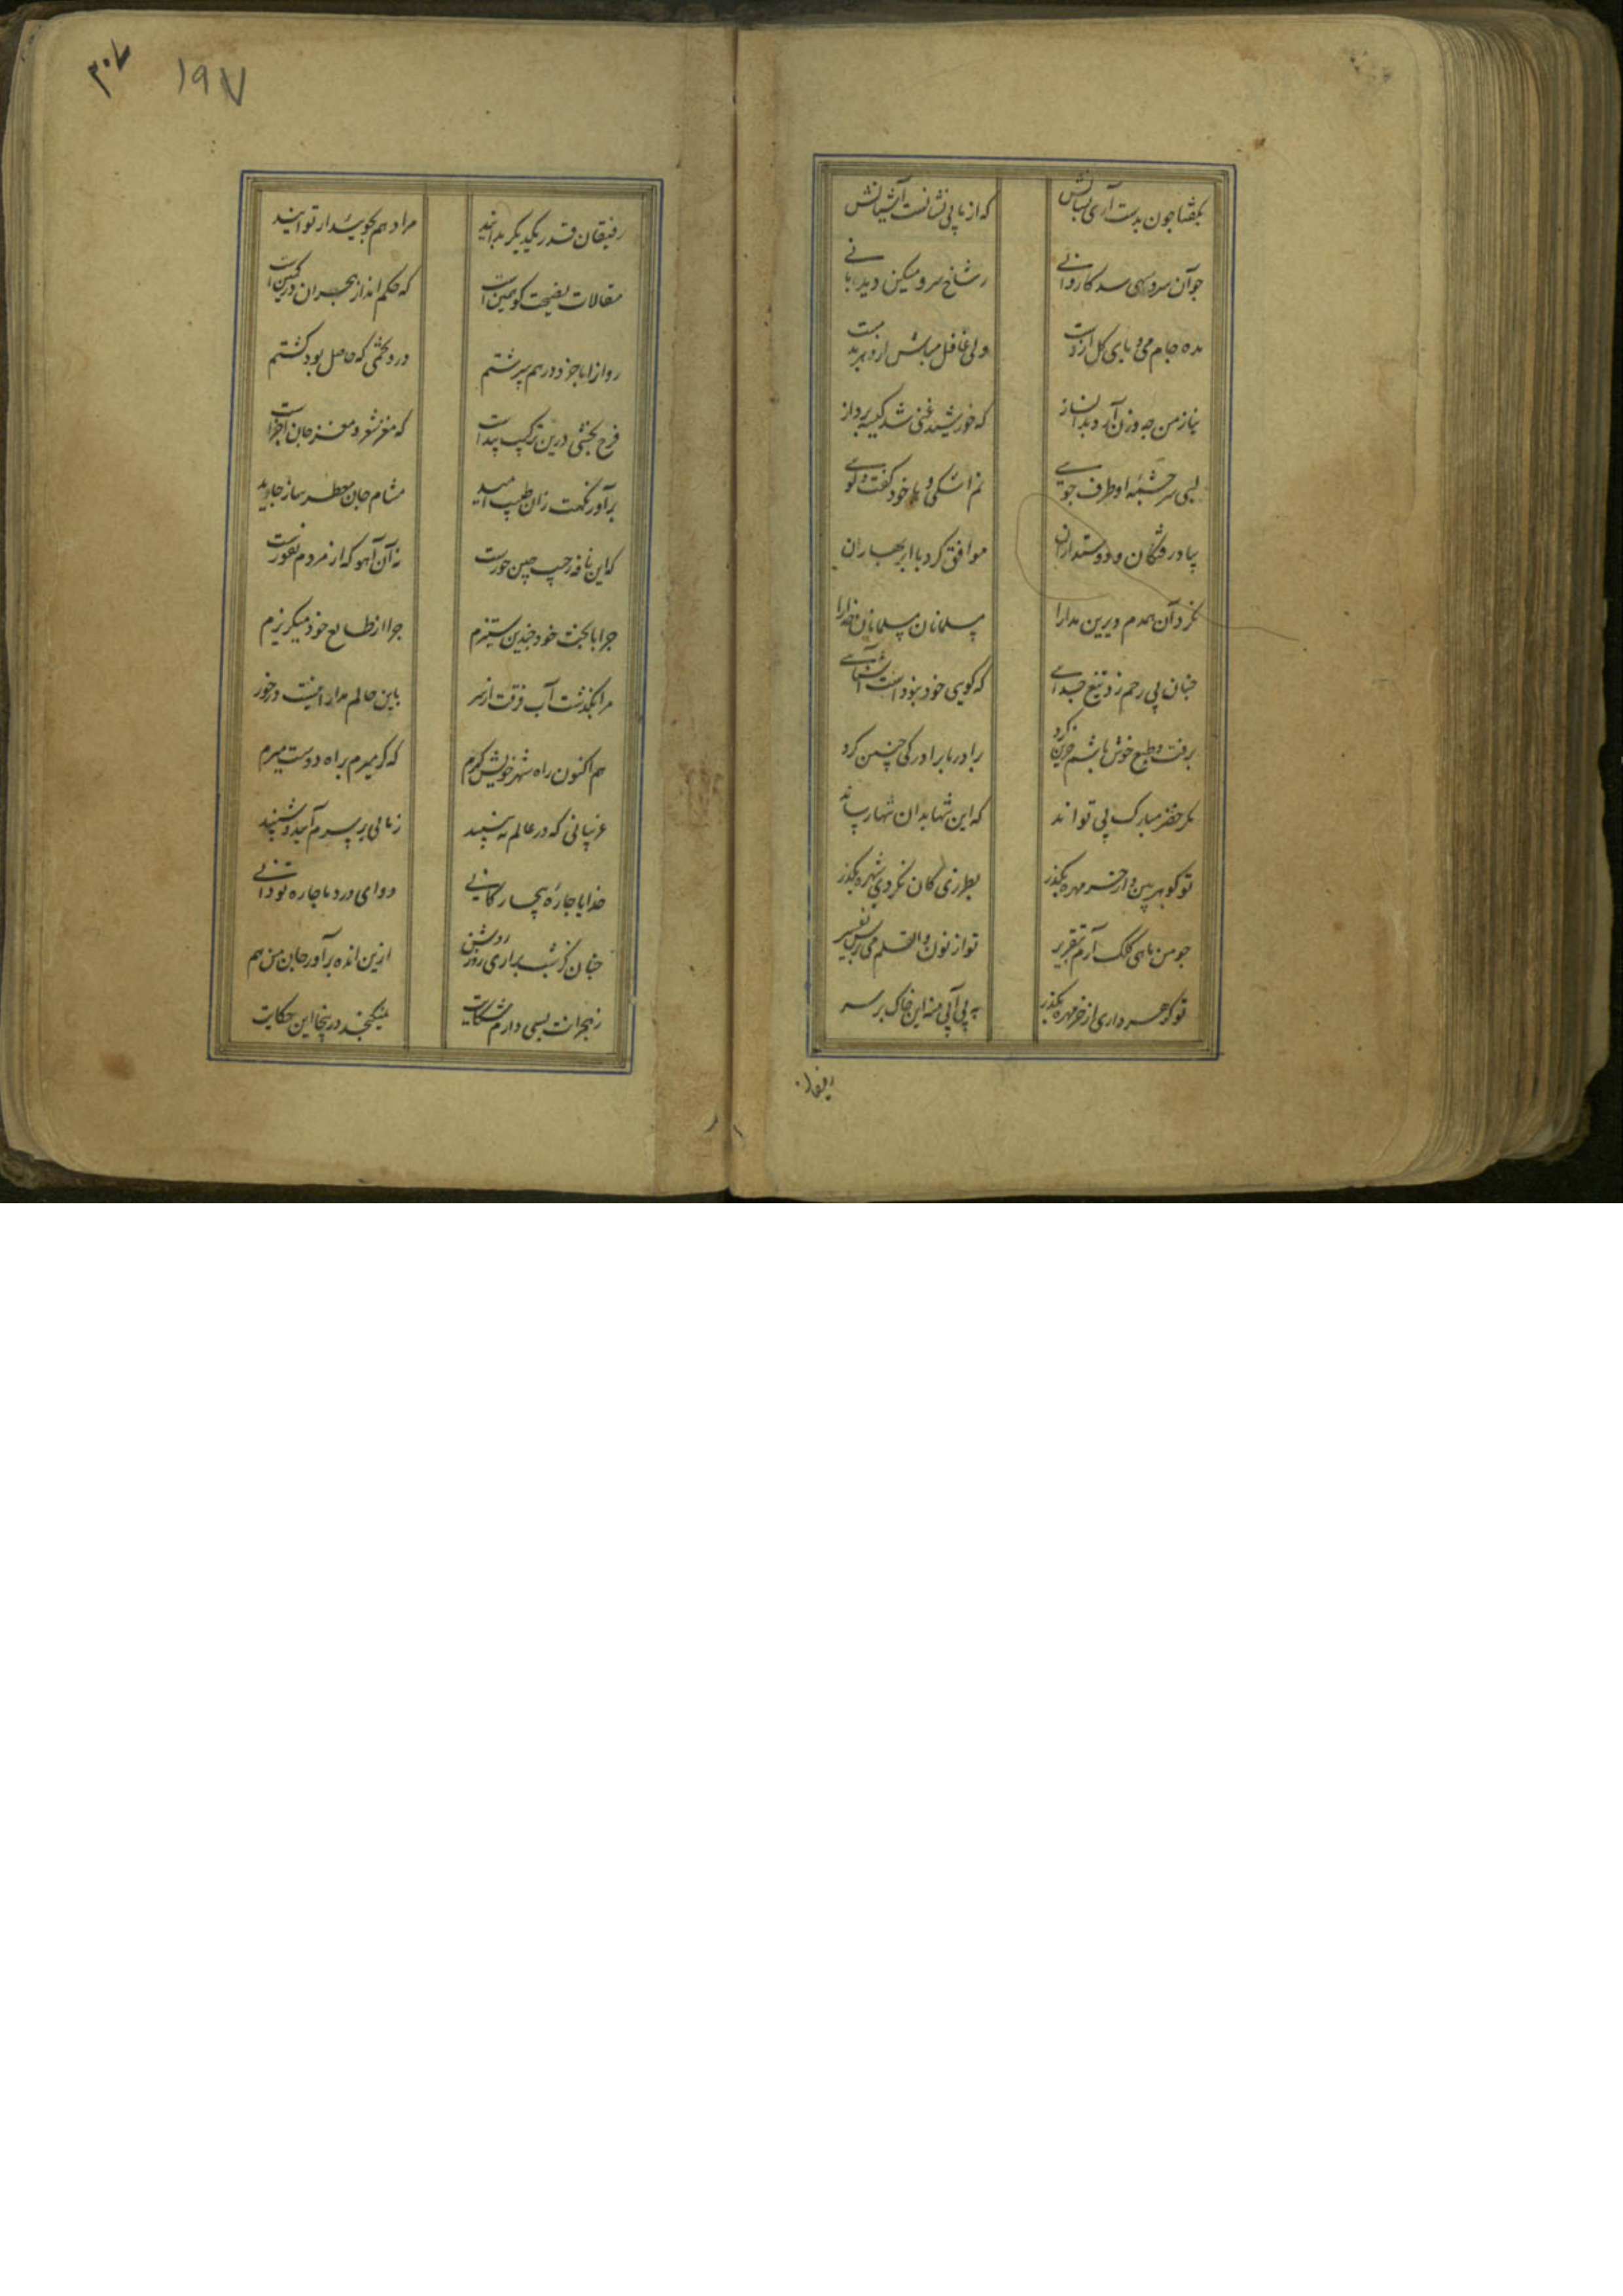 بگفتا چون بدست آری نشانش
که از ما بی نشانست آشیانش
چو آن سرو سهی شد کاروانی
ز شاخ سرو میکن دیده بانی
مده جام می و پای گل از دست
ولی غافل مباش از دهر بدمست
نیاز من چه وزن آرد بدین ساز
که خورشید غنی شد کیسه پرداز
لب سرچشمه او طرف جویی
نم اشکی و با خود گفت و گویی
بیاد رفتگان و دوستداران
موافق کرد با ابر بهاران
نکرد آن همدم دیرین مدارا
مسلمانان مسلمانان خدارا
چنان بی رحم زد تیغ جدایی
که گویی خود نبودست آشنایی
برفت و طبع خوش باشم حزین کرد
برادر با برادر کی چنین کرد
مگر خضر مبارک پی تواند
که این تنها بدان تنها رساند
تو گوهر بین و از خر مهره بگذر
بطرزی کان نگردد شهره بگذر
چو من ماهی کلک آرم بتقریر
تو از نون والقلم می پرس تفسیر
تو گوهر داری از خر مهره بگذر
منه این خاک بر سر
رفیقان
۳۰۷
۱۹۷
رفیقان قدر یکدیگر بدانید
مراد هم بجویید ار توانید
مقالات نصیحت گو همین است
که حکم انداز هجران در کمین است
روان را با خرد در هم سرشتم
در و تخمی که حاصل بود کشتم
فرح بخشی درین ترکیب پیداست
که مغز شعر و مغز جان اجزاست
برآور نکهت زان طیب امید
مشام جان معطر ساز جاوید
که این نافه ز جیب چین حورست
نه آن آهو که از مردم نفورست
چرا با بخت خود چندین ستیزم
چرا از طالع خود میگریزم
مرا بگذشت آب فرقت از سر
باین حالم مدارا نیست در خور
هم اکنون راه شهر خویش گیرم
که گر میرم براه دوست میرم
غریبانی که در عالم نه بینند
زمانی بر سرم آیند و شینند
خدایا چاره بیچارگانی
دوای درد ما چاره تو دانی
چنان کز شب براری روز روشن
ازین انده برآور جان من هم
ز هجرانت بسی دارم شکایت
نمیگنجد درینجا این حکایت